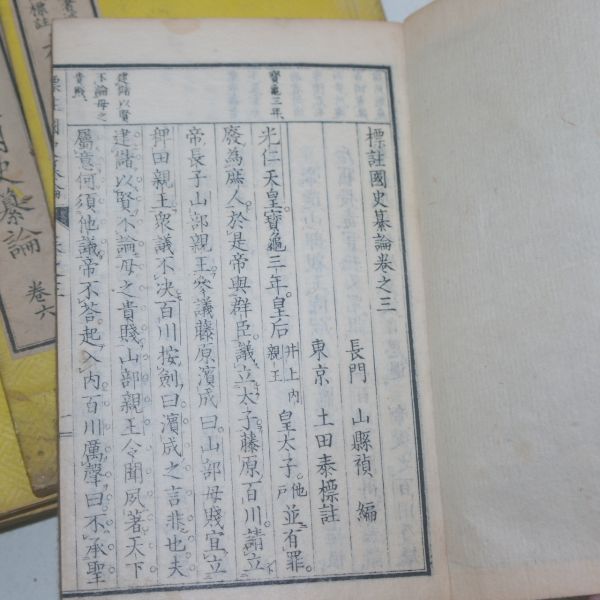 標註國史纂論卷之三
長門 山縣禎 編
東京 土田泰標註
光仁天皇寶龜三年。皇后 井上內親王 皇太子。他戶 並有罪。
廢為庶人。於是帝與群臣。議立太子。藤原百川請立
帝長子山部親王。參議藤原濱成曰。山部母賤。宜立
稗田親王。衆議不決。百川按劍曰。濱成之言非也。夫
建儲以賢。不論母之貴賤。山部親王令聞夙著。天下
屬意。何須他議。帝不荅。起入內。百川厲聲曰。不承聖
寶龜三年、
建儲以賢
不論母之
貴賤、
標註國史纂論
卷之三
史纂論
卷六
標註